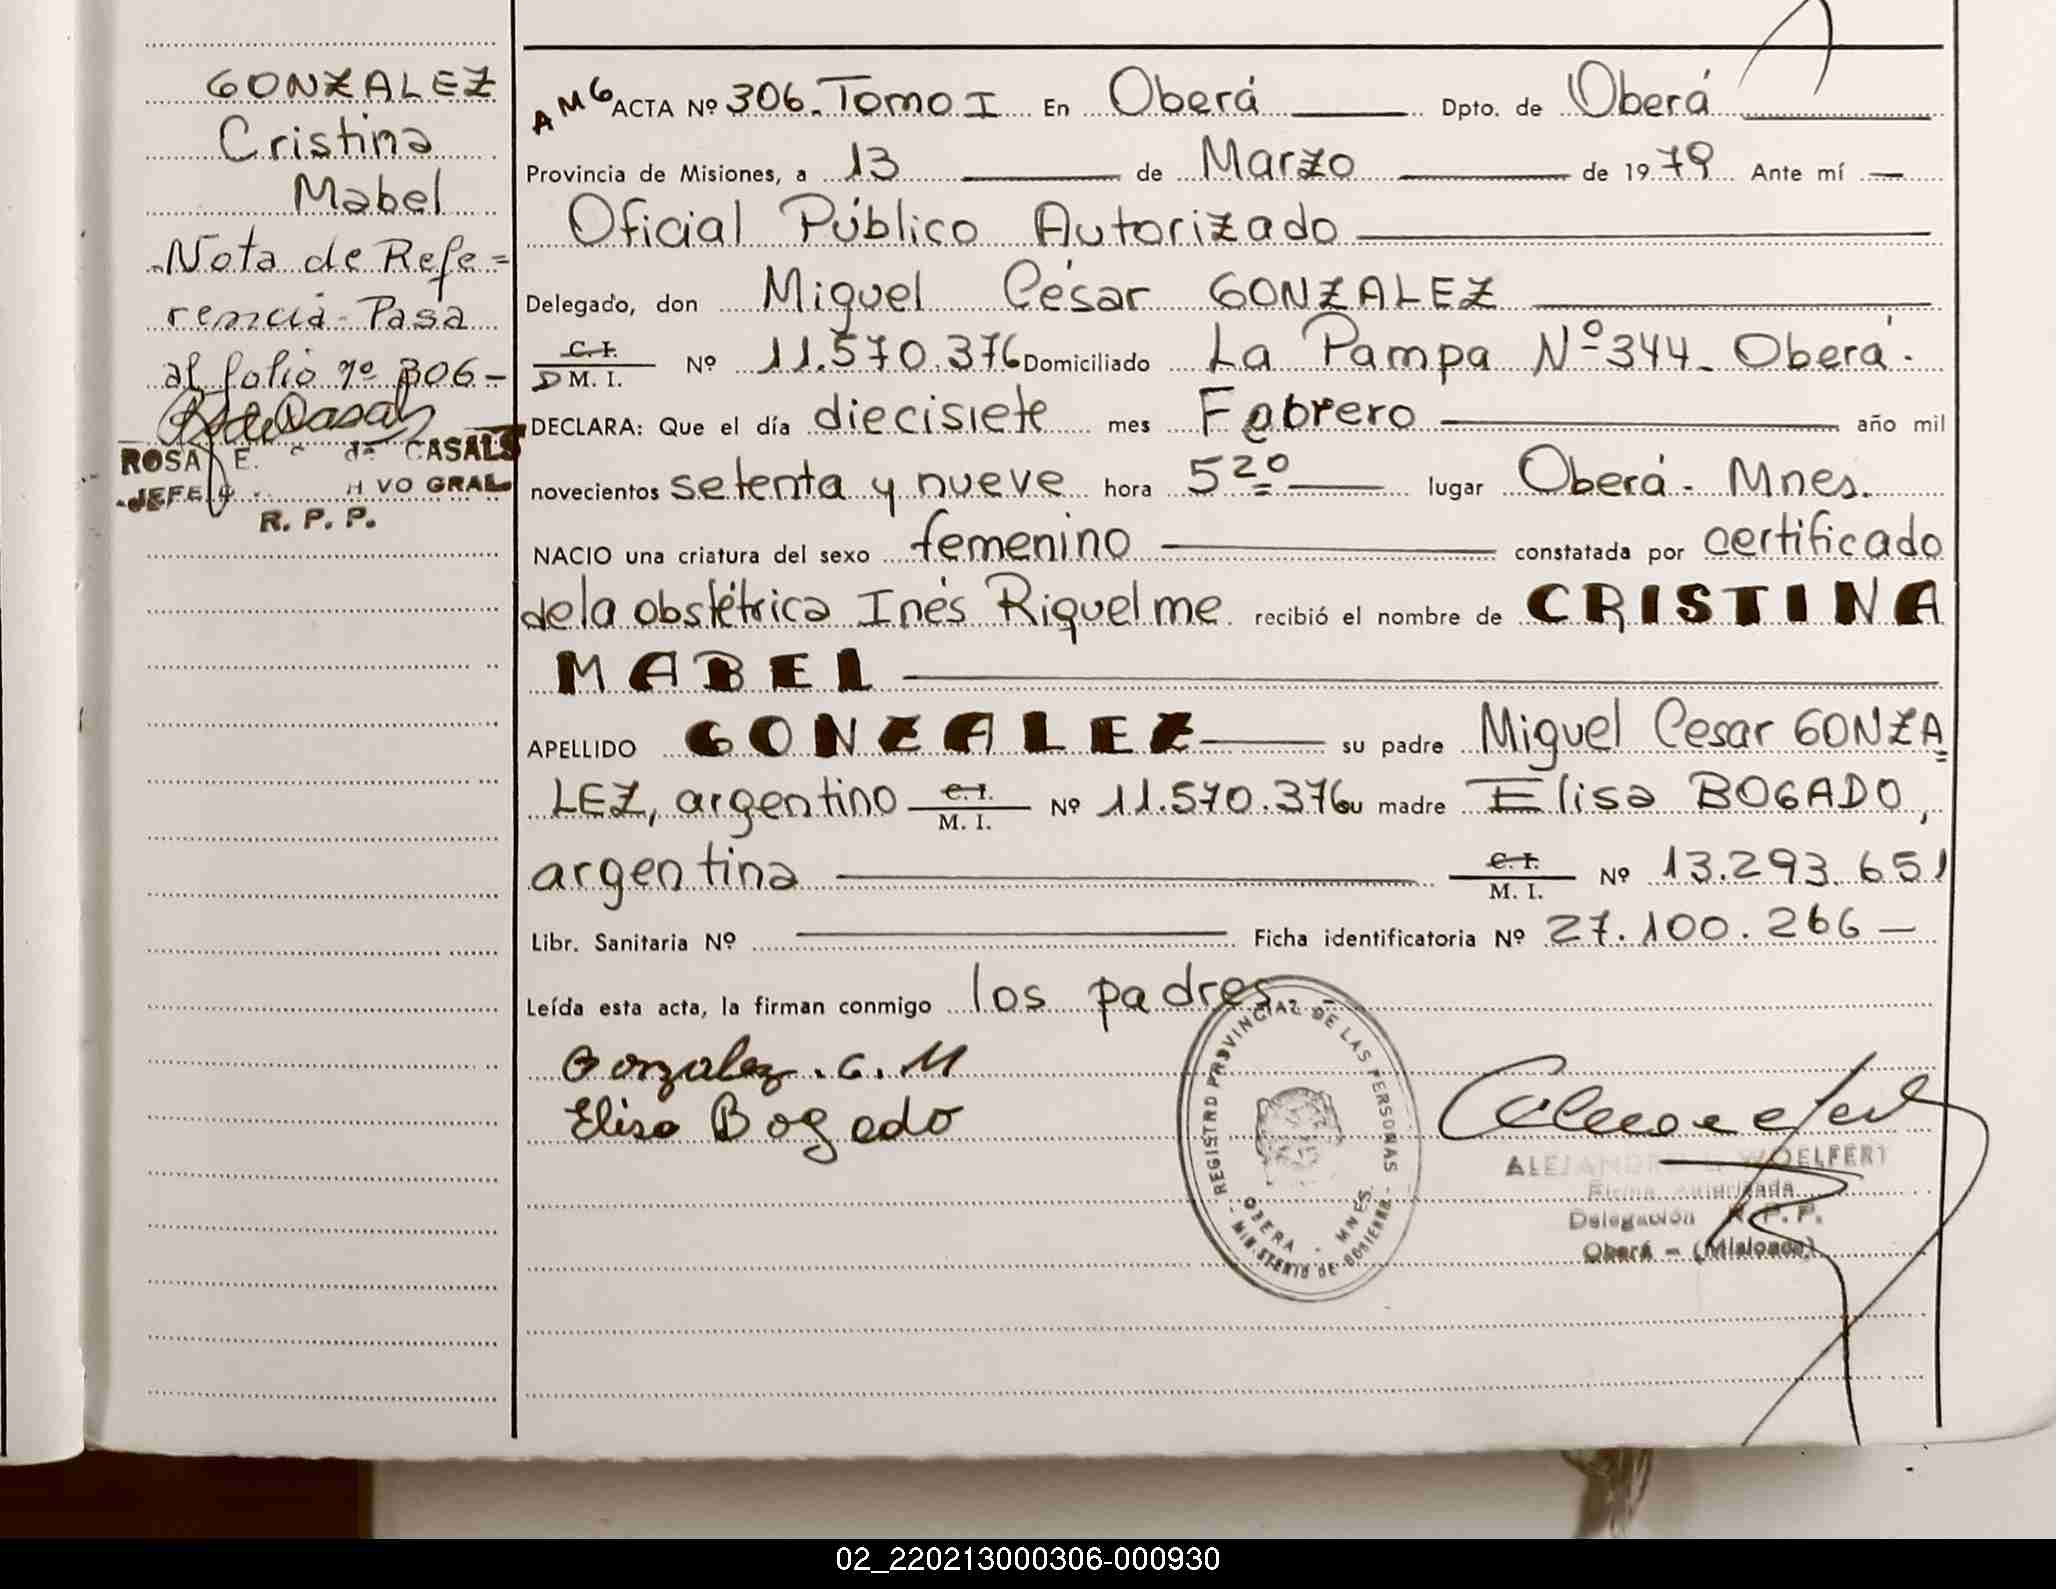 GONZALEZ
Cristina
Mabel
Nota de Refe=
rencia-Pasa
al folio nº 306-
ROSA E. de CASALS
JEFE VO GRAL.
R. P. P.
AMG ACTA Nº 306. Tomo I En Oberá Dpto. de Oberá
Provincia de Misiones, a 13 de Marzo de 1979 Ante mí
Oficial Público Autorizado
Delegado, don Miguel César GONZALEZ
C. I.
D M. I. Nº 11.570.376 Domiciliado La Pampa Nº 344. Oberá.
DECLARA: Que el día diecisiete mes Febrero año mil
novecientos setenta y nueve hora 5 20 lugar Oberá - Mnes.
NACIO una criatura del sexo femenino constatada por certificado
de la obstétrica Inés Riquelme recibió el nombre de CRISTINA
MABEL
APELLIDO GONZALEZ su padre Miguel Cesar GONZA
LEZ, argentino C. I. M. I. Nº 11.570.376 su madre Elisa BOGADO,
argentina C. I. M. I. Nº 13.293.651
Libr. Sanitaria Nº Ficha identificatoria Nº 27.100.266-
Leída esta acta, la firman conmigo los padres
Gonzalez . C. M
Elisa Bogado
- REGISTRO PROVINCIAL DE LAS PERSONAS -
OBERA - MNES.
MINISTERIO DE GOBIERNO
ALEJANDRO L. WOELFERT
Firma Autorizada
Delegación R. P. P.
Oberá - (Misiones)
02_220213000306-000930